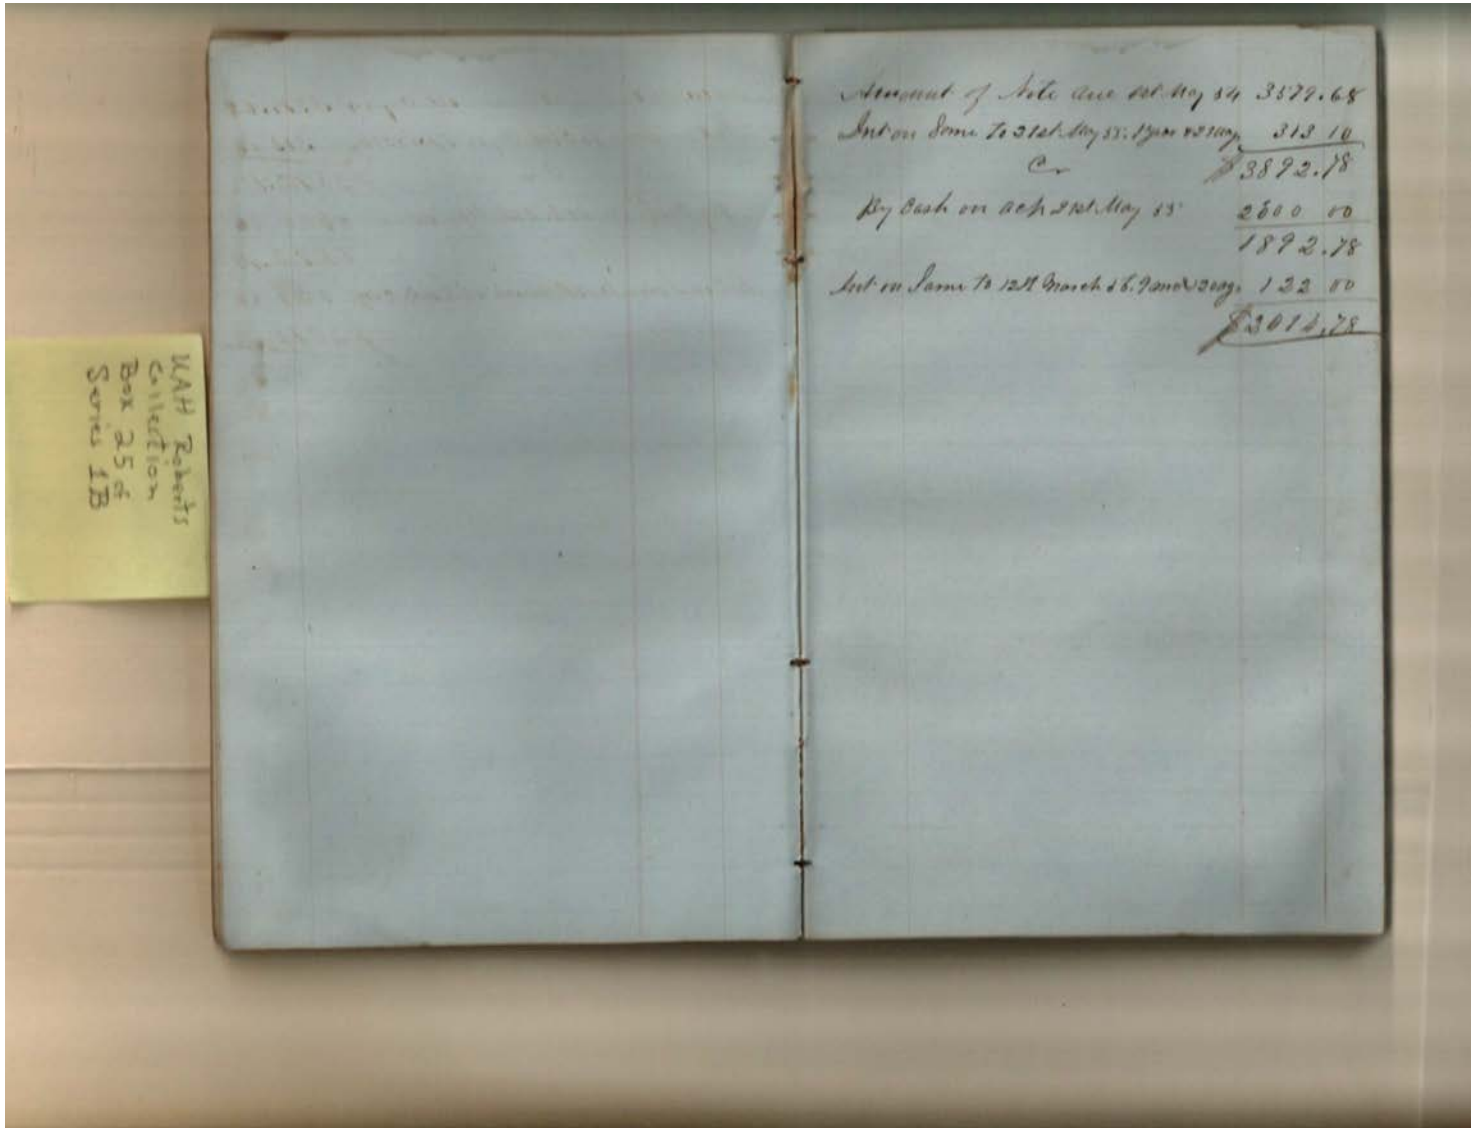 UAH Roberts
Collection
Box 25 of
Series 1B
Amount of Note due 1st May 54 3579.68
Int on Same to 21st May 55. 1 year & 21 days 313 10
Cr $3892.78
By Cash on acp 21st May 55 2000 00
1892.78
Int on Same to 12th March 56. 9 mo 122 00
$2014.78